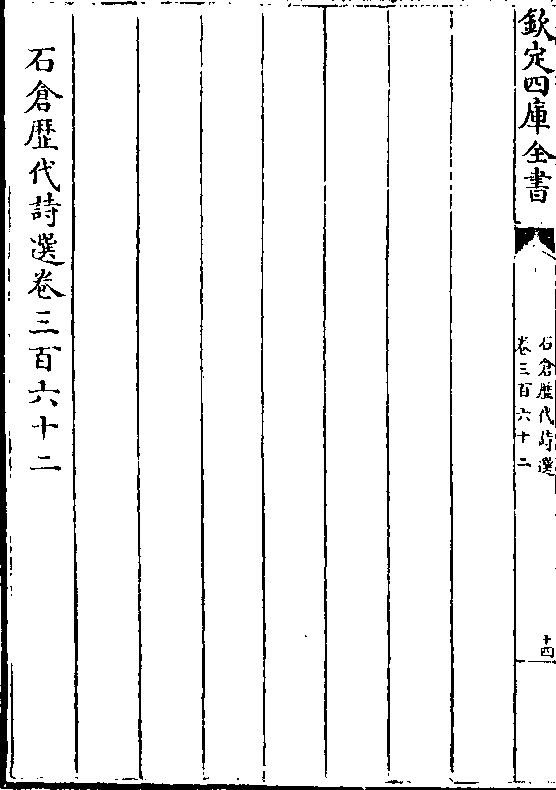 欽定四庫全書
石倉歴代詩選
卷三百六十二
十四
石倉歴代詩選卷三百六十二